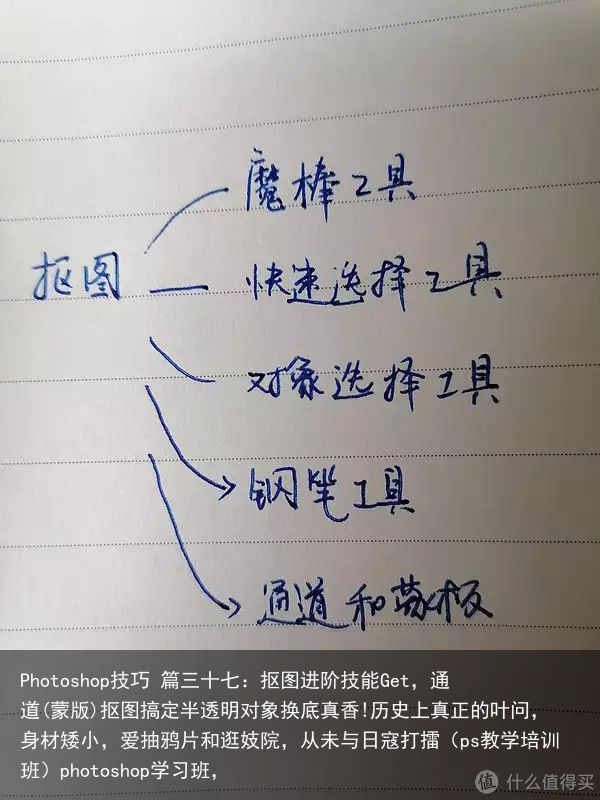 魔棒工具
抠图
快速选择工具
对象选择工具
钢笔工具
通道和蒙板
Photoshop技巧 篇三十七: 抠图进阶技能Get, 通
道(蒙版)抠图搞定半透明对象换底真香!历史上真正的叶问,
身材矮小, 爱抽鸦片和逛妓院, 从未与日寇打擂 (ps教学培训
班) photoshop学习班,
值 什么值得买